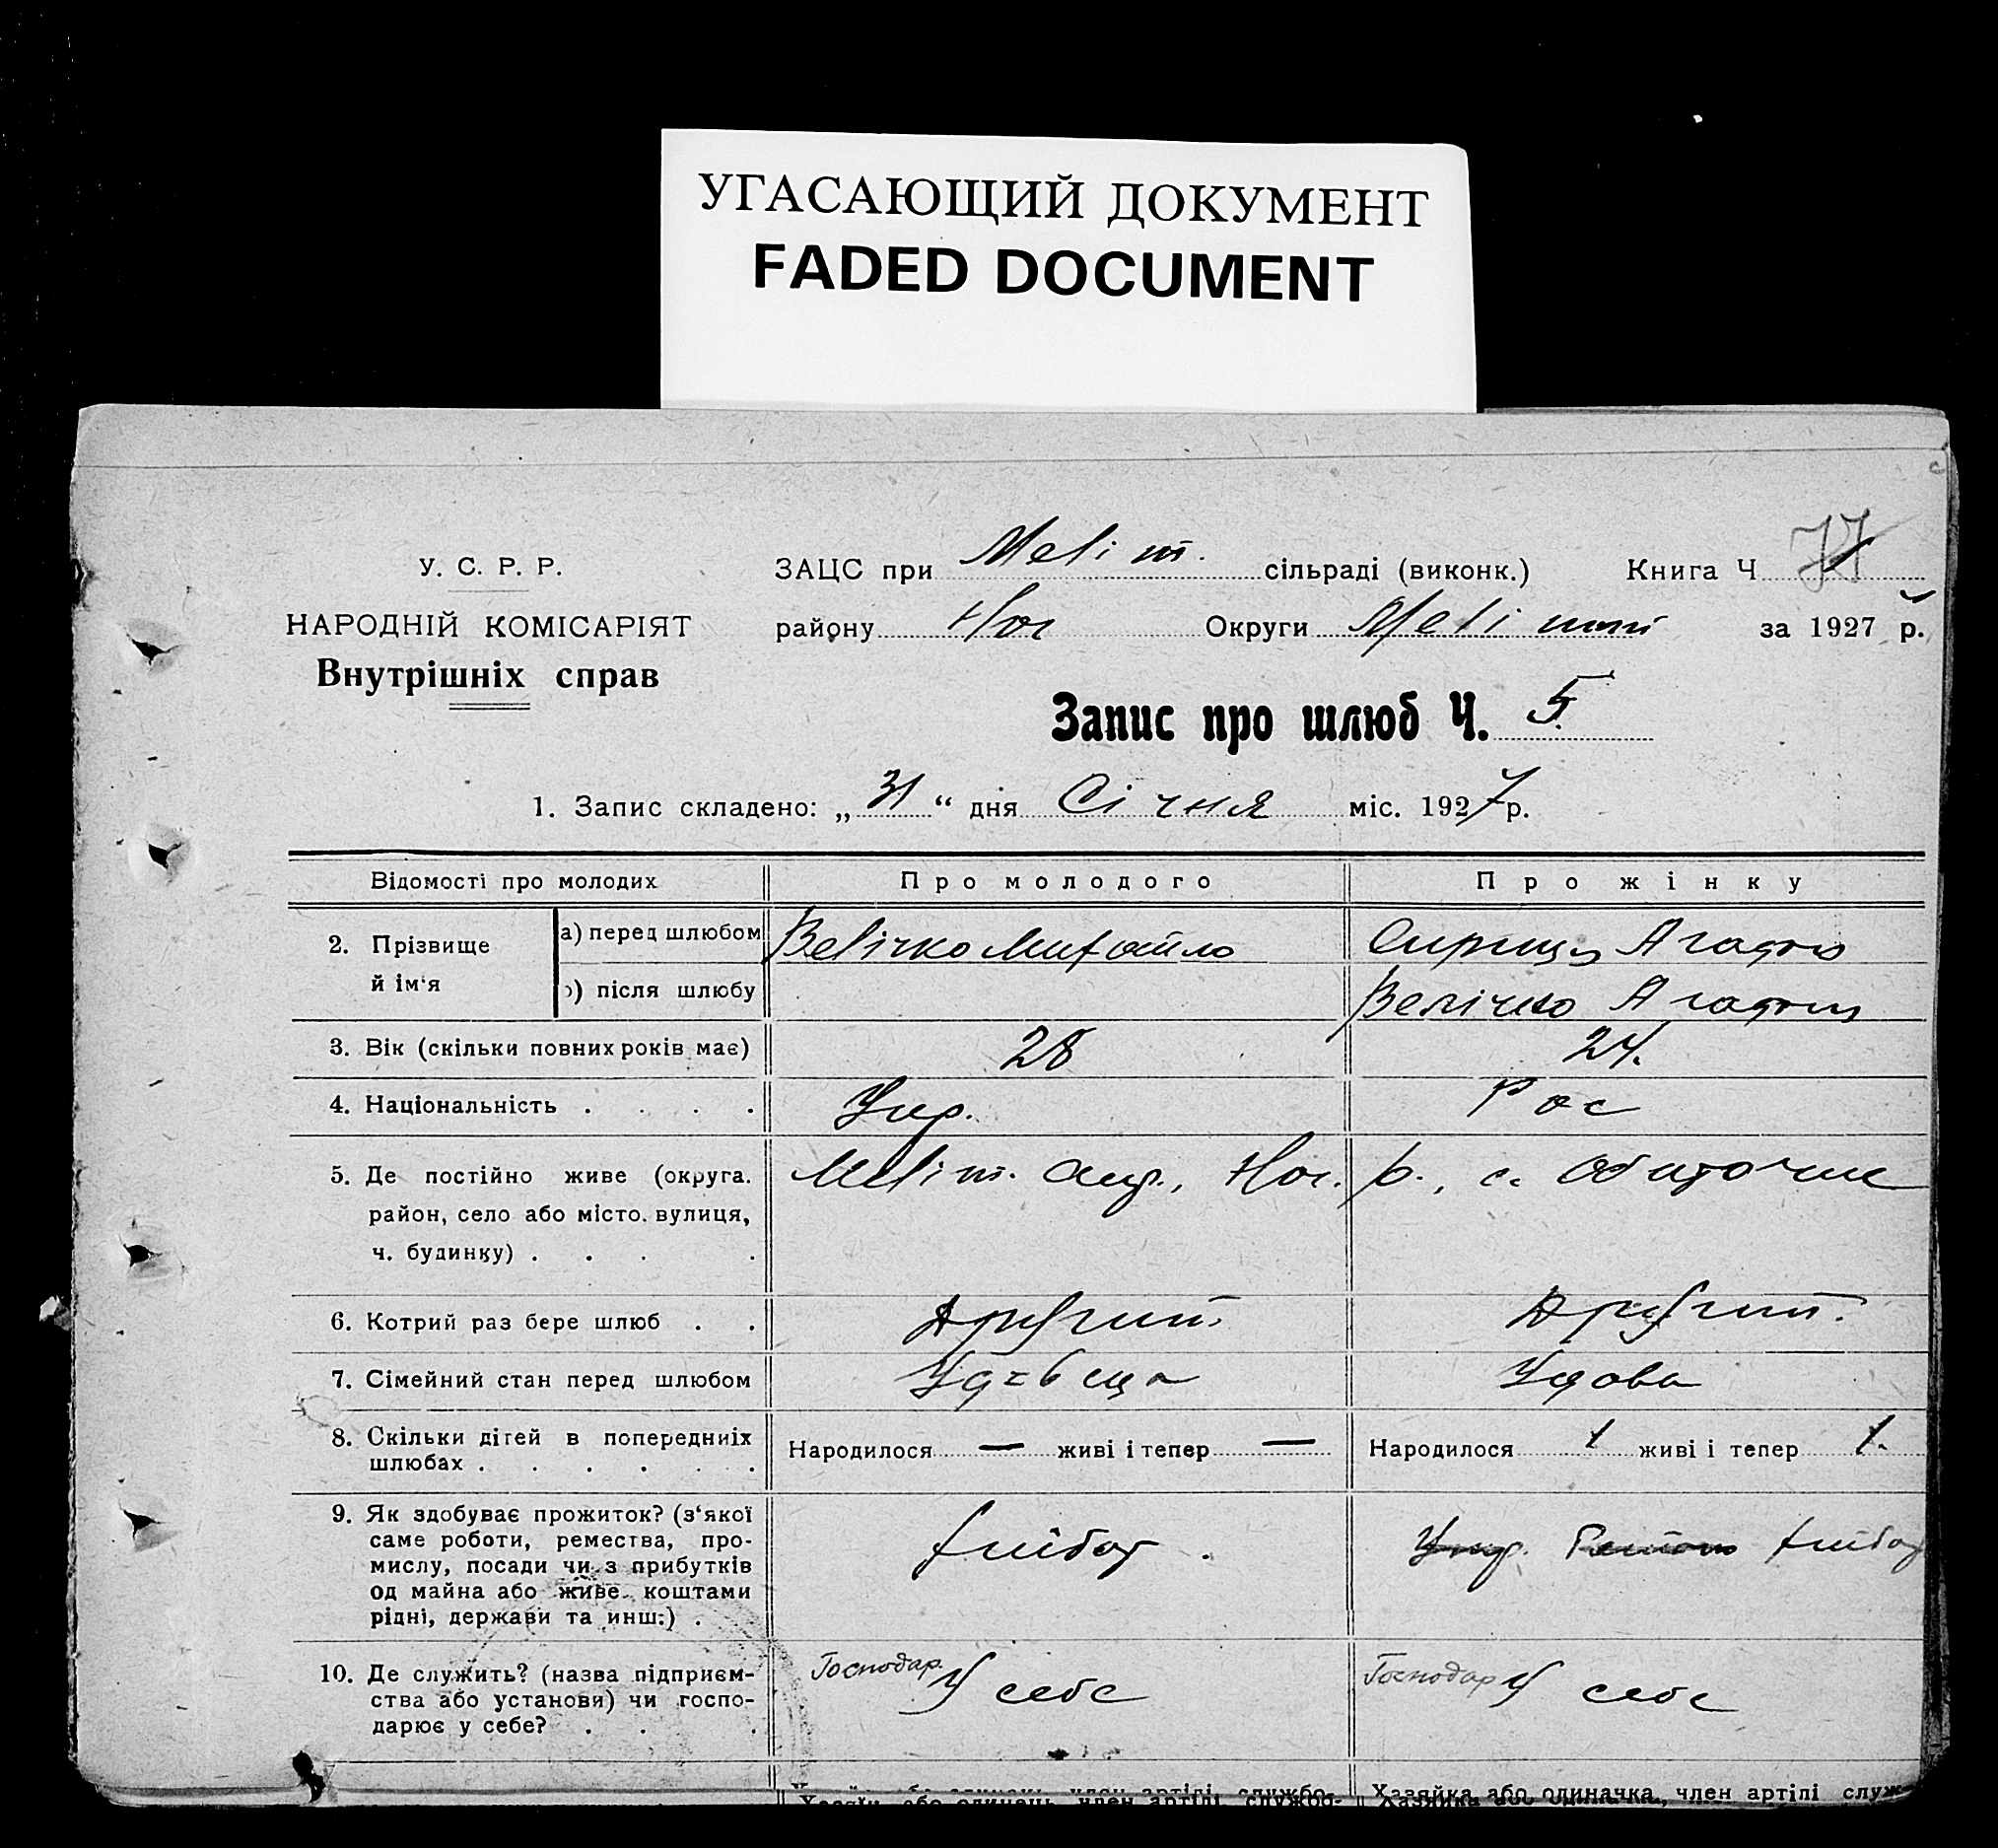 УГАСАЮЩИЙ ДОКУМЕНТ
FADED DOCUMENT
У. С. Р. Р.
НАРОДНІЙ КОМІСАРІЯТ
Внутрішніх справ
ЗАЦС при Меліт. сільраді (виконк.) Книга Ч
району Ног Округи Меліт за 1927 р.
Запис про шлюб Ч. 5
1. Запис складено: „31“ дня Січня міс. 1927 р.
Відомості про молодих Про молодого Про жінку
2. Прізвище й ім‘я
а) перед шлюбом Велічко Михайло Агафію
) після шлюбу Велічко Агафия
3. Вік (скільки повних років має) 28 24.
4. Національність . . . . Укр. Рос
5. Де постійно живе (округа. Меліт. окр., Ног. р., с. Обиточне
район, село або місто. вулиця,
ч. будинку) . . . .
6. Котрий раз бере шлюб . . Другий. Другий.
7. Сімейний стан перед шлюбом Удова
8. Скільки дітей в попередніх Народилося — живі і тепер — Народилося 1 живі і тепер 1.
шлюбах . . . . . .
9. Як здобуває прожиток? (з‘якої
саме роботи, ремества, про- хлібор. хлібор
мислу, посади чи з прибутків
од майна або живе коштами
рідні, держави та инш:) .
10. Де служить? (назва підприєм- Господар. У себе Господар У себе
ства або установи) чи госпо-
дарює у себе? . . .
Хазяїн або одинець, член артілі, службо- Хазяйка або одиначка, член артілі служ-